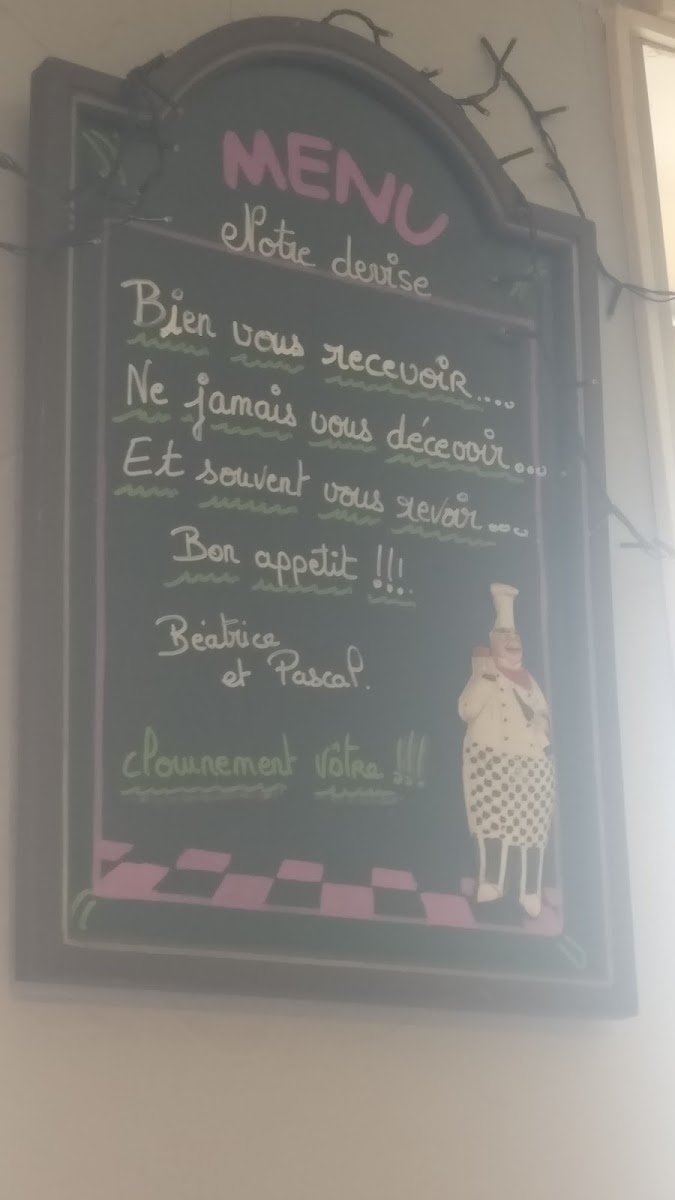 MENU
Notre devise
Bien vous recevoir....
Ne jamais vous décevoir...
Et souvent vous revoir....
Bon appetit !!!
Béatrice
et Pascal.
clounement vôtre !!!